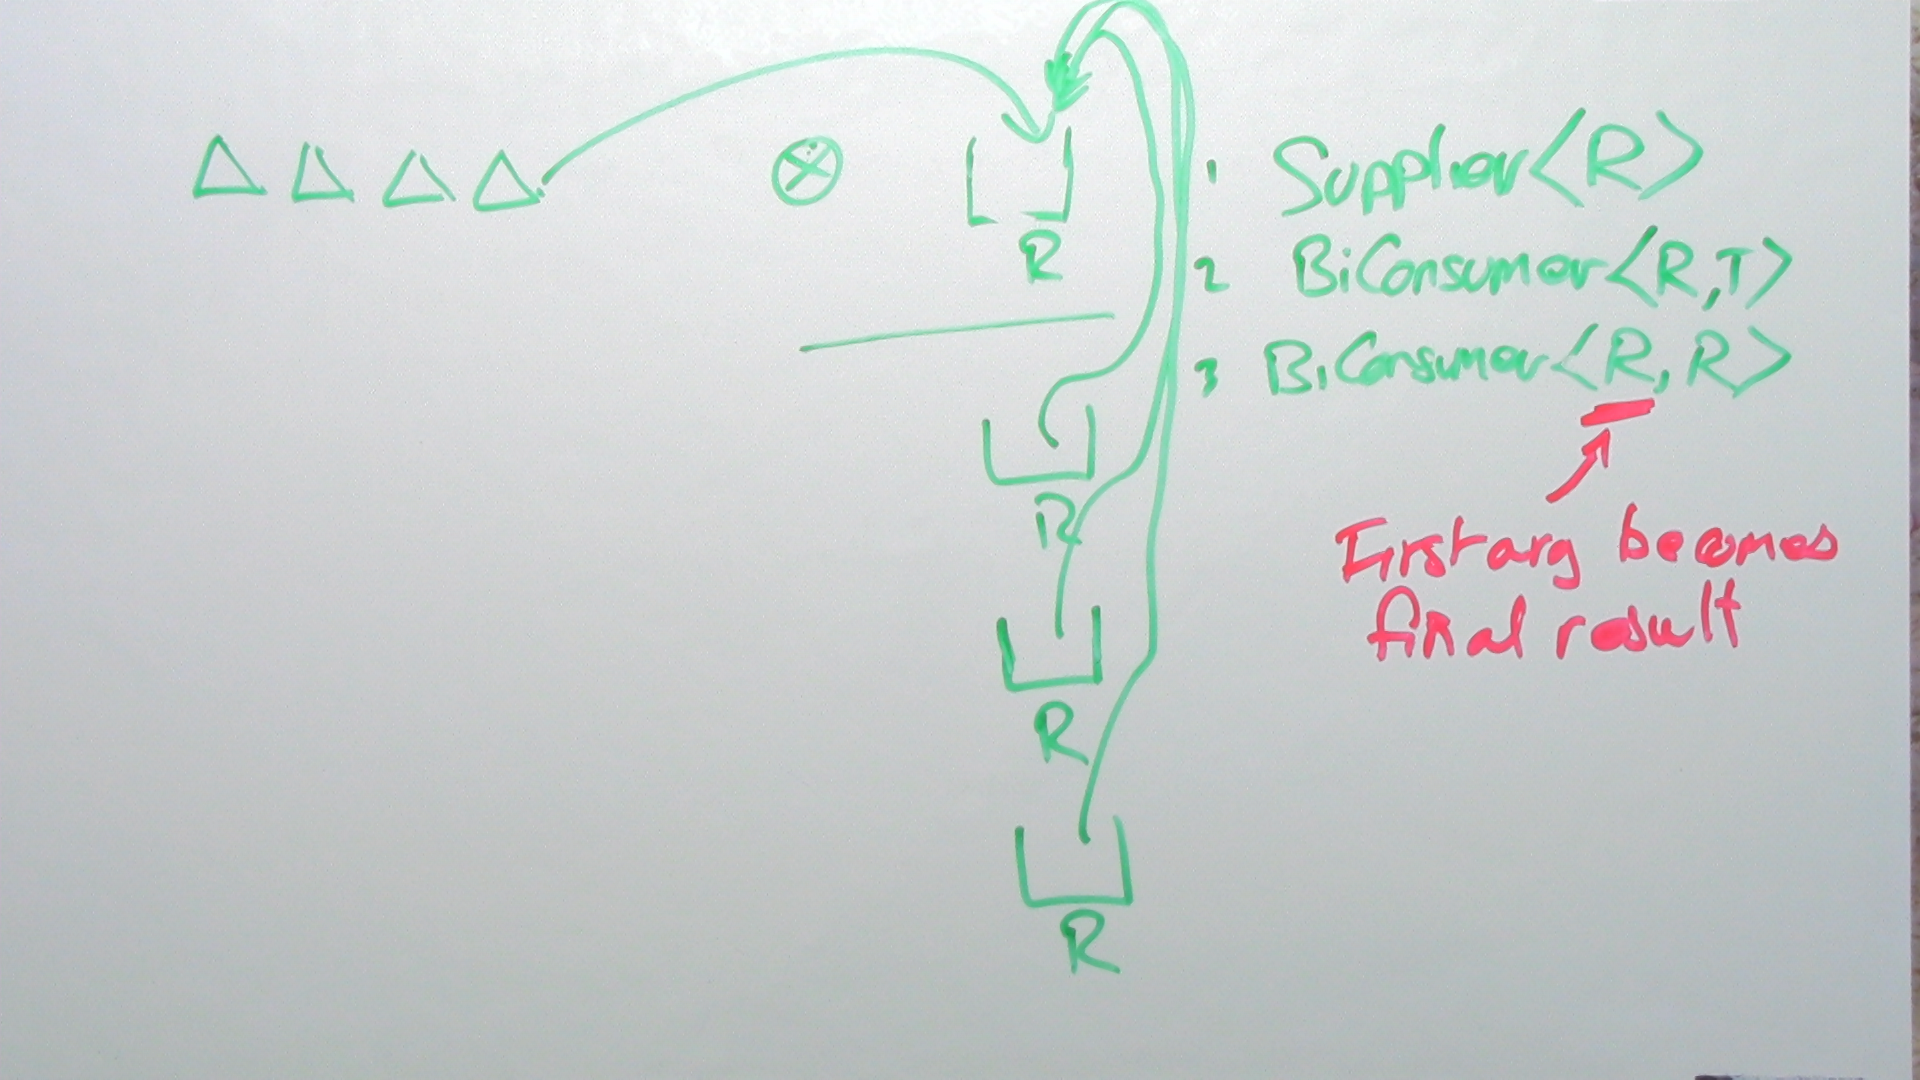 1 Supplier<R>
2 BiConsumer<R,T>
3 BiConsumer<R,R>
First arg becomes
final result
R
R
R
R